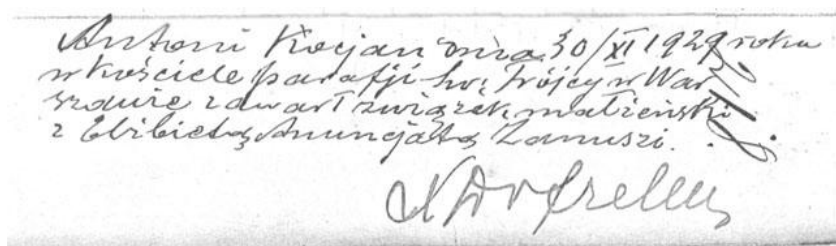 Antoni Kocjan dnia 30/XI 1929 roku
w kościele parafji św. Trójcy w War
szawie zawarł związek małżeński
z Elżbietą Anuncjatą Zanussi.